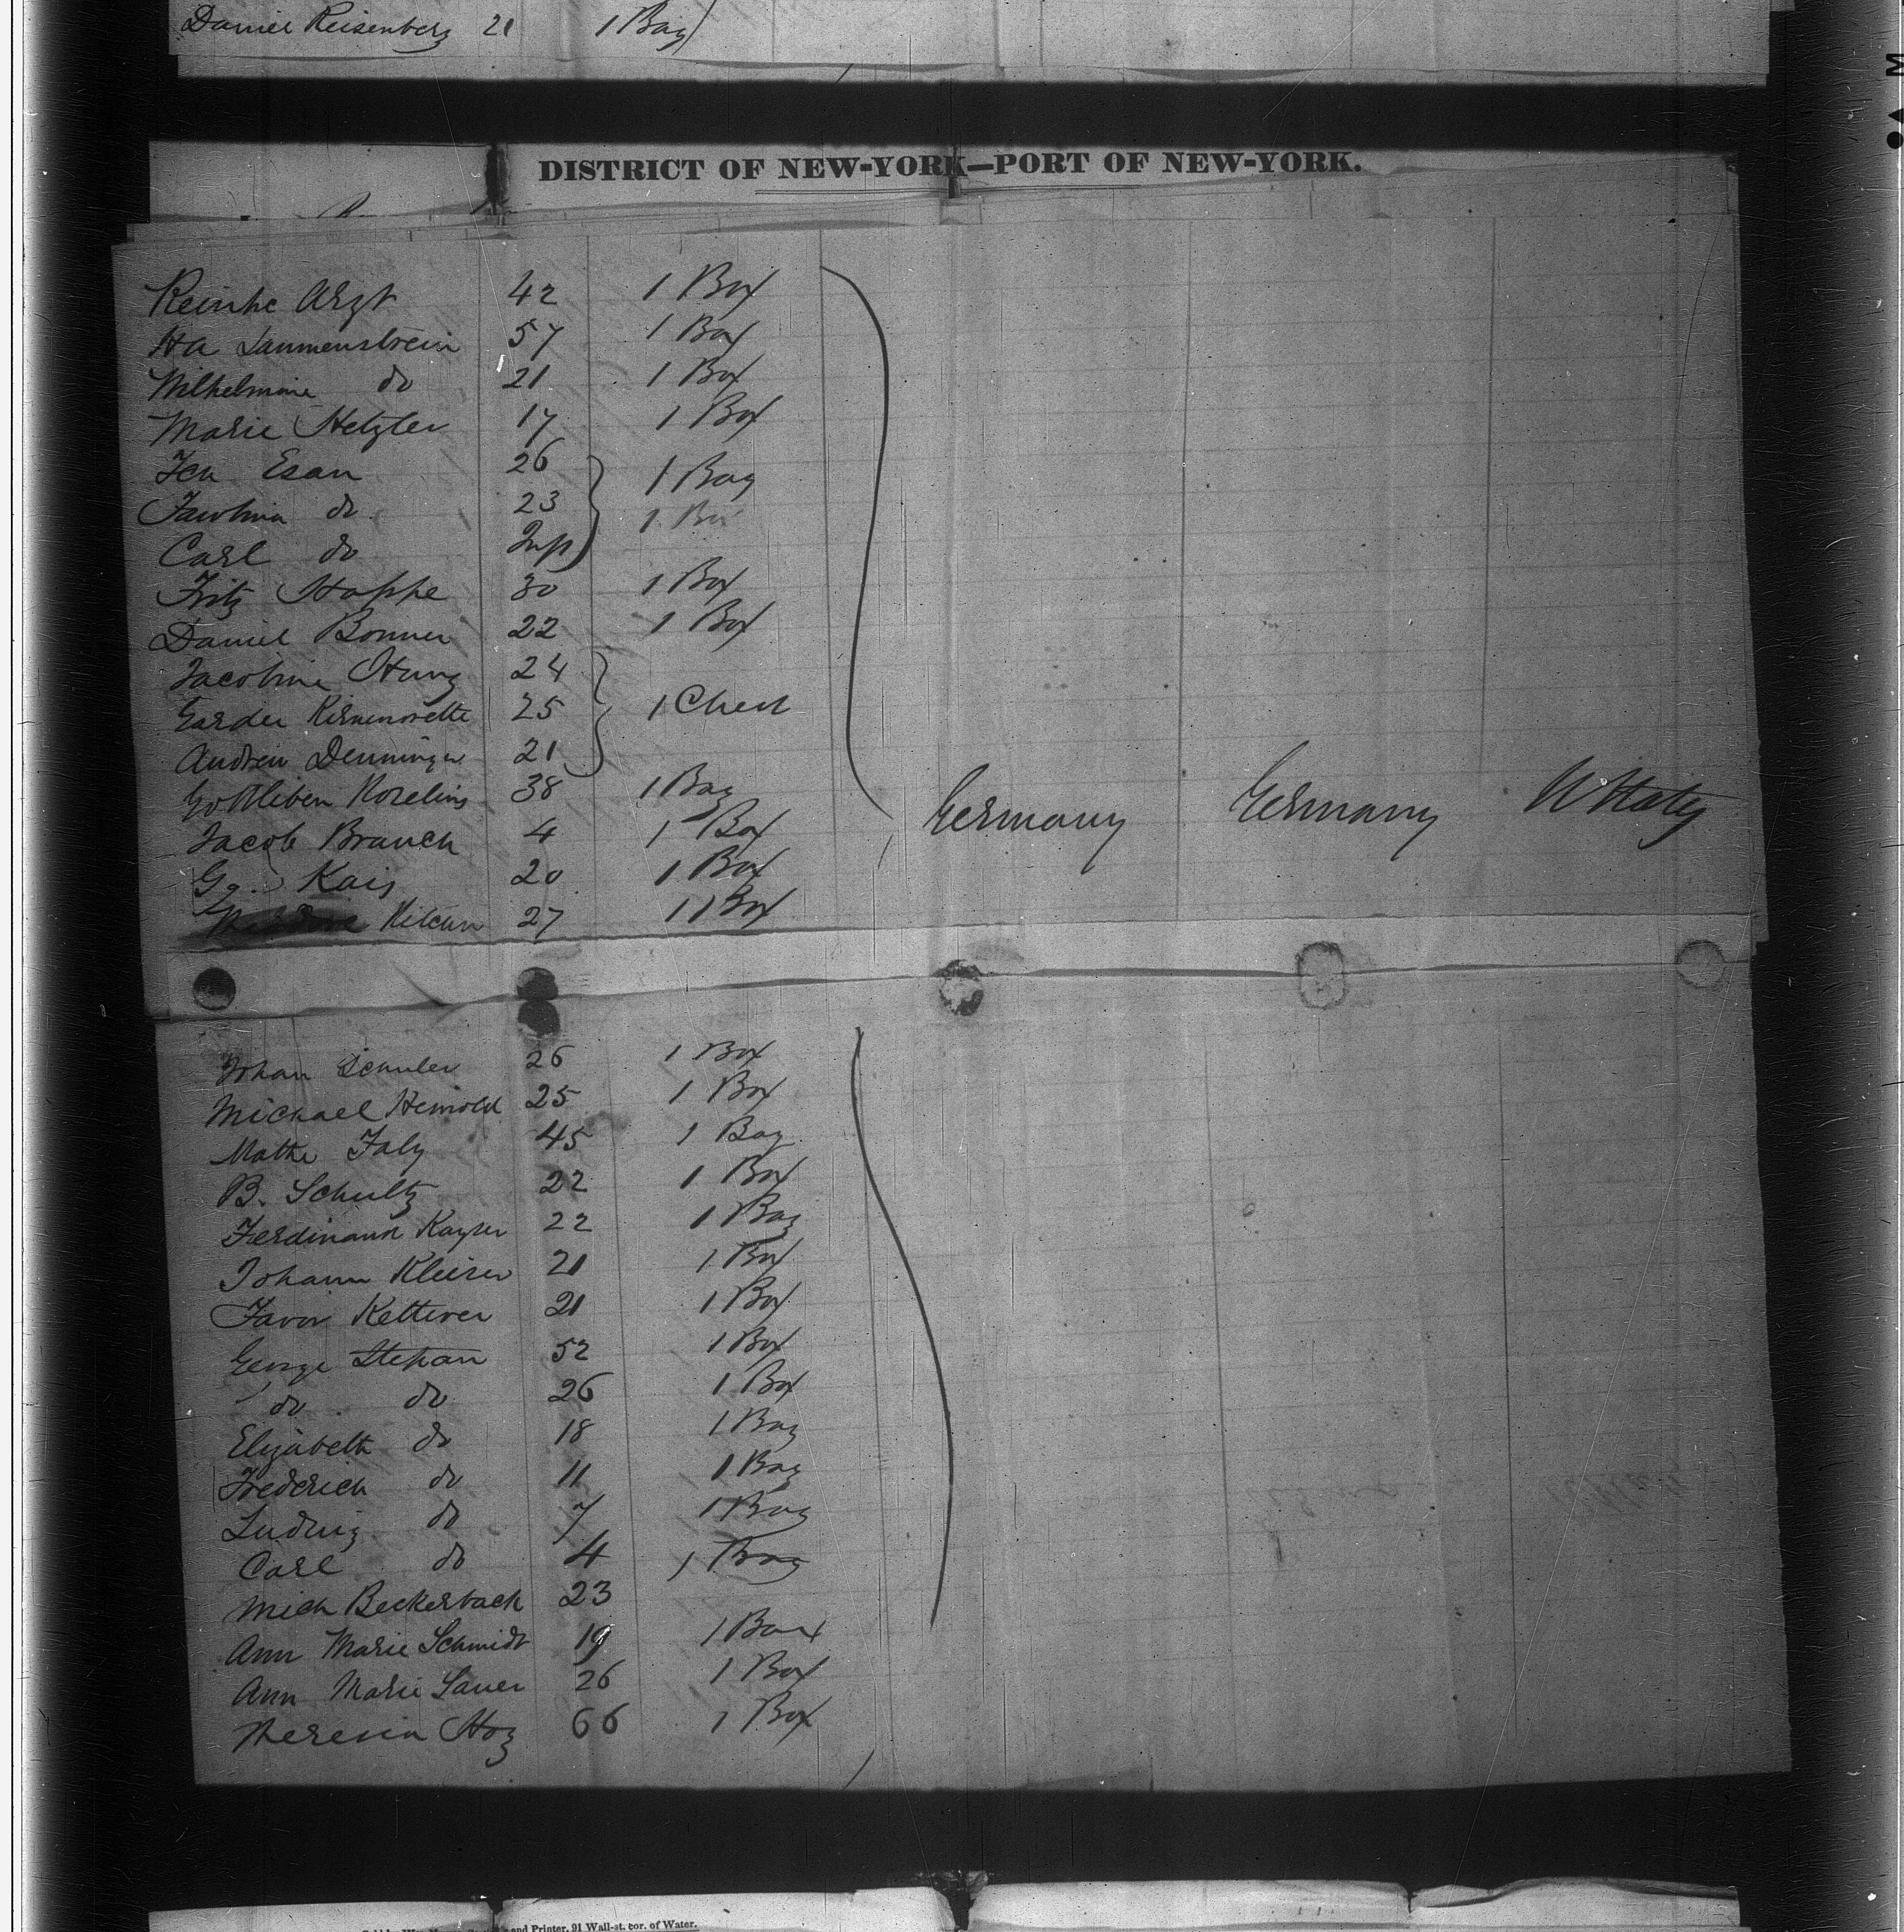 Daniel Reisenberg 21 1 Bag
DISTRICT OF NEW-YORK—PORT OF NEW-YORK.
Reinhe Arzt 42 1 Box
Ha Lammenstrein 57 1 Box
Wilhelmine do 21 1 Box
Marie Hetzler 17 1 Box
Esan 26 1 Bag
do 23 1
Carl do Inf
Fritz Hoppe 30 1 Box
Daniel Bonner 22 1 Box
Jacobine 24
25 1 Chest
Andrew Denninger 21
Gottlieben 38 1 Bag
Jacob Brauch 4 1 Box Germany Germany U States
Gg. Kais 20 1 Box
27 1 Box
Johan Schuler 26 1 Box
Michael Heinold 25 1 Box
Mathe Faly 45 1 Bag
B. Schultz 22 1 Box
Ferdinand Kayser 22 1 Bag
Johann Kleiser 21 1 Box
Ketterer 21 1 Box
George Stephan 52 1 Box
do do 26 1 Box
Elizabeth do 18 1 Bag
Frederich do 11 1 Bag
Ludwig do 7 1 Bag
Carl do 4 1 Bag
Mich Beckerbach 23
Ann Marie Schmidt 19 1 Box
Ann Marie Sauer 26 1 Box
Theresia Hog 66 1 Box
and Printer, 91 Wall-st. cor. of Water.